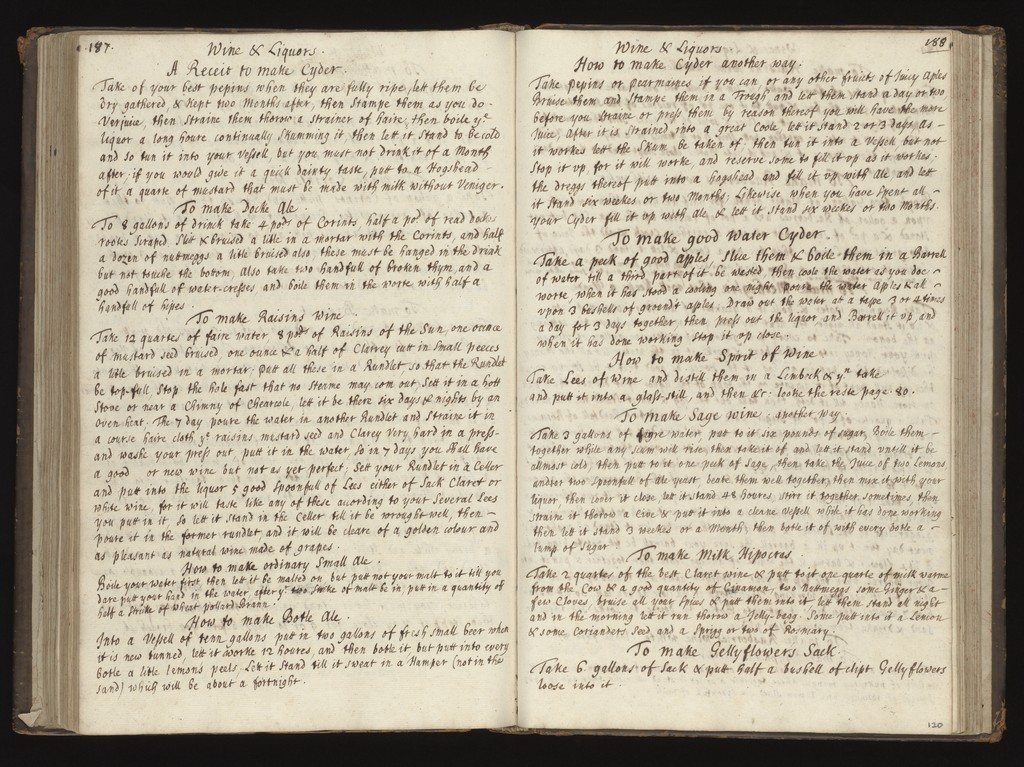 187.
Wine & Liquors.
A Receit to make Cyder.
Take of your best pepins when they are fully ripe, lett them be
dry gathered, & kept two Months after, then Stampe them as you do
Verjuice, then Straine them thorow a strainer of Haire, then boile ye
liquor a long houre continually Skumming it, then lett it Stand to be cold
and so tun it into your Vessell, but you must not drink it of a Month
after, if you would give it a quick dainty taste, putt to a Hogshead
of it a quarte of mustard that must be made with milk without Veniger.
To make Docke Ale.
To 8 gallons of drinck take 4 pods of Corints, half a pod of read docke
rootes Scraped, Slitt & bruised a litle in a mortar with the Corints, and half
a dozen of nutmeggs a litle bruised also, these must be hanged in the drink
but not touche the bottom, Also take two handfull of broken thym, and a
good handfull of water-cresses and boile them in the worte with half a
handfull of hipes.
To make Raisins Wine.
Take 12 quartes of faire water, 8 pods of Raisins of the Sun, one ounce
of mustard seed bruised one ounce & a half of Clarrey cutt in Small peeces
a litle bruised in a mortar, putt all these in a Rundlet so that the Rundlet
be top-full, Stop the hole fast that no steame may com out, Sett it in a hott
Stove or near a Chimny of Chearcole, let it be there six days & nights by an
even heat. The 7 day poure the water in another Rundlet and Straine it in
a course haire cloth ye raisins, mustard seed and Clarey Very hard in a press
and washe your press out, putt it in the water, So in 7 days you shall have
a good or new wine but not as yet perfect, Sett your Rundlet in a Celler
and putt into the liquor 5 good Spoonfull of Lees either of Sack Claret or
white wine, for it will taste like any of these according to your Several Lees
you putt in it, So lett it Stand in the Celler till it be wrought well, then
poure it in the former rundlet, and it will be cleare of a golden colour and
as pleasant as natural wine made of grapes.
How to make ordinary Small Ale.
Boile your water first, then lett it be malted on, but putt not your malt to it till you
dare putt your hand in the water, after ye two Strike of malt be in putt in a quantity of
half a Strike of wheat pollard Brann.
How to make Botle Ale.
Into a Vessell of tenn gallons putt in two gallons of fresh Small beer when
it is new tunned, lett it worke 12 houres, and then botle it but putt into every
botle a litle lemons peels. Lett it Stand till it sweat in a Hamper (not in the
sand) which will be about a fortnight.
188.
Wine & Liquors.
How to make Cyder another way.
Take pepins or pearmaines if you can, or any other fruict of Juicy Aples
Bruise them and Stampe them in a Trogh and lett them stand a day or two
before you Straine or press them by reason thereof you will have the more
Juice, After it is Strained into a great Coole, let it stand 2 or 3 days, As
it workes lett the Skum be taken of, then tun it into a Vessell but not
Stop it up for it will worke, and reserve some to fill it up as it workes.
the dreggs thereof putt into a hogshead and fill it up with Ale and lett
it Stand six weekes or two Months: Likewise when you have Spent all
your Cyder fill it up with Ale, & lett it stand six weekes or two Months.
To make good Water Cyder.
Take a peck of good apples, Slice them & boile them in a Barrell
of water till a third part of it be wasted, then coole the water as you doe
worte, when it has stood a cooling one night, poure the water Aples & all
upon 3 bushells of ground apples. Draw out the water at a tape 3 or 4 times
a day for 3 days together, then press out the liquor, and Barrell it up and
when it has done working Stop it up close.
How to make Sprit of Wine
Take Lees of Wine and distill them in a Lembick & ye take
and putt it into a glass still, and then &c: looke the reste page 80.
To make Sage wine: another way
Take 3 gallons of water, putt to it six pounds of sugar, Boile them
together while any Scum will rise, then take it of and lett it stand untill it be
allmost cold, then putt to it one peck of Sage, then take the Juice of two Lemons
and two Spoonfull of Ale yeast beate them well together, then mix it with your
liquor then cover it close, let it stand 48 houres, stirr it together sometimes then
straine it thorow a Cive & putt it into a cleane Vessell while it has done working
then lett it stand 3 weekes or a Month then botle it of with every botle a
lump of sugar.
To make Milk Hipocras.
Take 2 quartes of the best Claret wine & putt to it one quarte of milk warme
from the Cow & a good quantity of Cinamon, two nuttmeggs some Ginger & a
few Cloves, bruise all your Spice & putt them into it, lett them stand all night
and in the morning let it run thorow a Jelly-bagg. Some putt into it a Lemon
& some Corianders Seed and a Sprigg or two of Rosmary.
To make Gellyflowers Sack
Take 6 gallons of Sack & putt half a bushell of clipt Gellyflowers
loose into it.
120